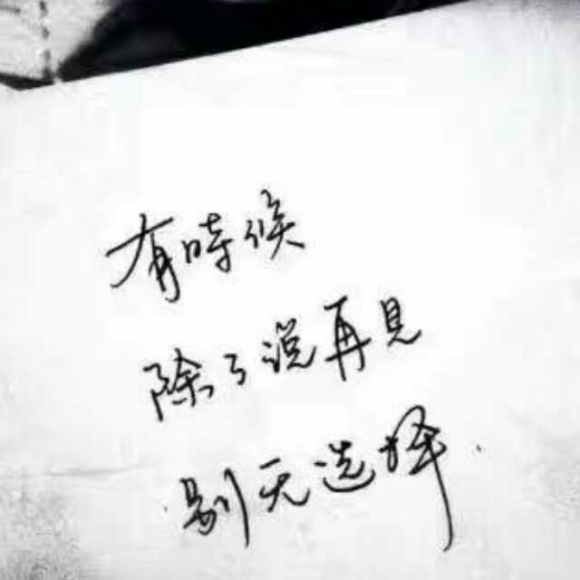 有時候
除了说再見
别无选择.